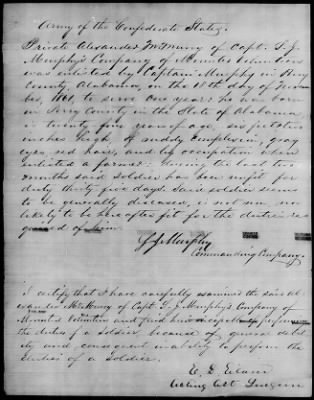 Army of the Confederate States:
Private Alexander McMurry of Capt. S. J.
Murphy's Company of Minute Volunteers
was enlisted by Captain Murphy in Perry
County, Alabama, on the 18th day of Novem
ber, 1861, to serve one year: he was born
in Perry County in the State of Alabama
is twenty five years of age, six feet two
inches high of ruddy complexion, gray
eyes red hair, and by occupation when
enlisted a farmer: during the last two
months said soldier has been unfit for
duty thirty five days. Said soldier seems
to be generally diseased, is not now nor
likely to be hereafter fit for the duties re
quired of him
Murphy
Commanding Company.
I certify that I have carefully examined the said Al
exander McMurry of Capt. Murphy's Company of
Minute Volunteers and find him incapable of performing
the duties of a soldier because of general debil
ity and consequent inability to perform the
duties of a soldier.
Acting Asst Surgeon